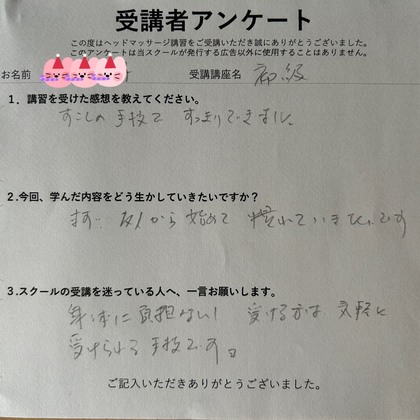 受講者アンケート
この度はヘッドマッサージ講習をご受講いただき誠にありがとうございました。
このアンケートは当スクールが発行する広告以外に使用することはありません。
お名前 受講講座名 初級
1．講習を受けた感想を教えてください。
すこしの手技で すっきりできました。
2.今回、学んだ内容をどう生かしていきたいですか？
まず、友人から始めて 慣れていきたいです
3.スクールの受講を迷っている人へ、一言お願いします。
身体に負担ない！ 受ける方は 気軽に
受けられる手技です。
ご記入いただきありがとうございました。